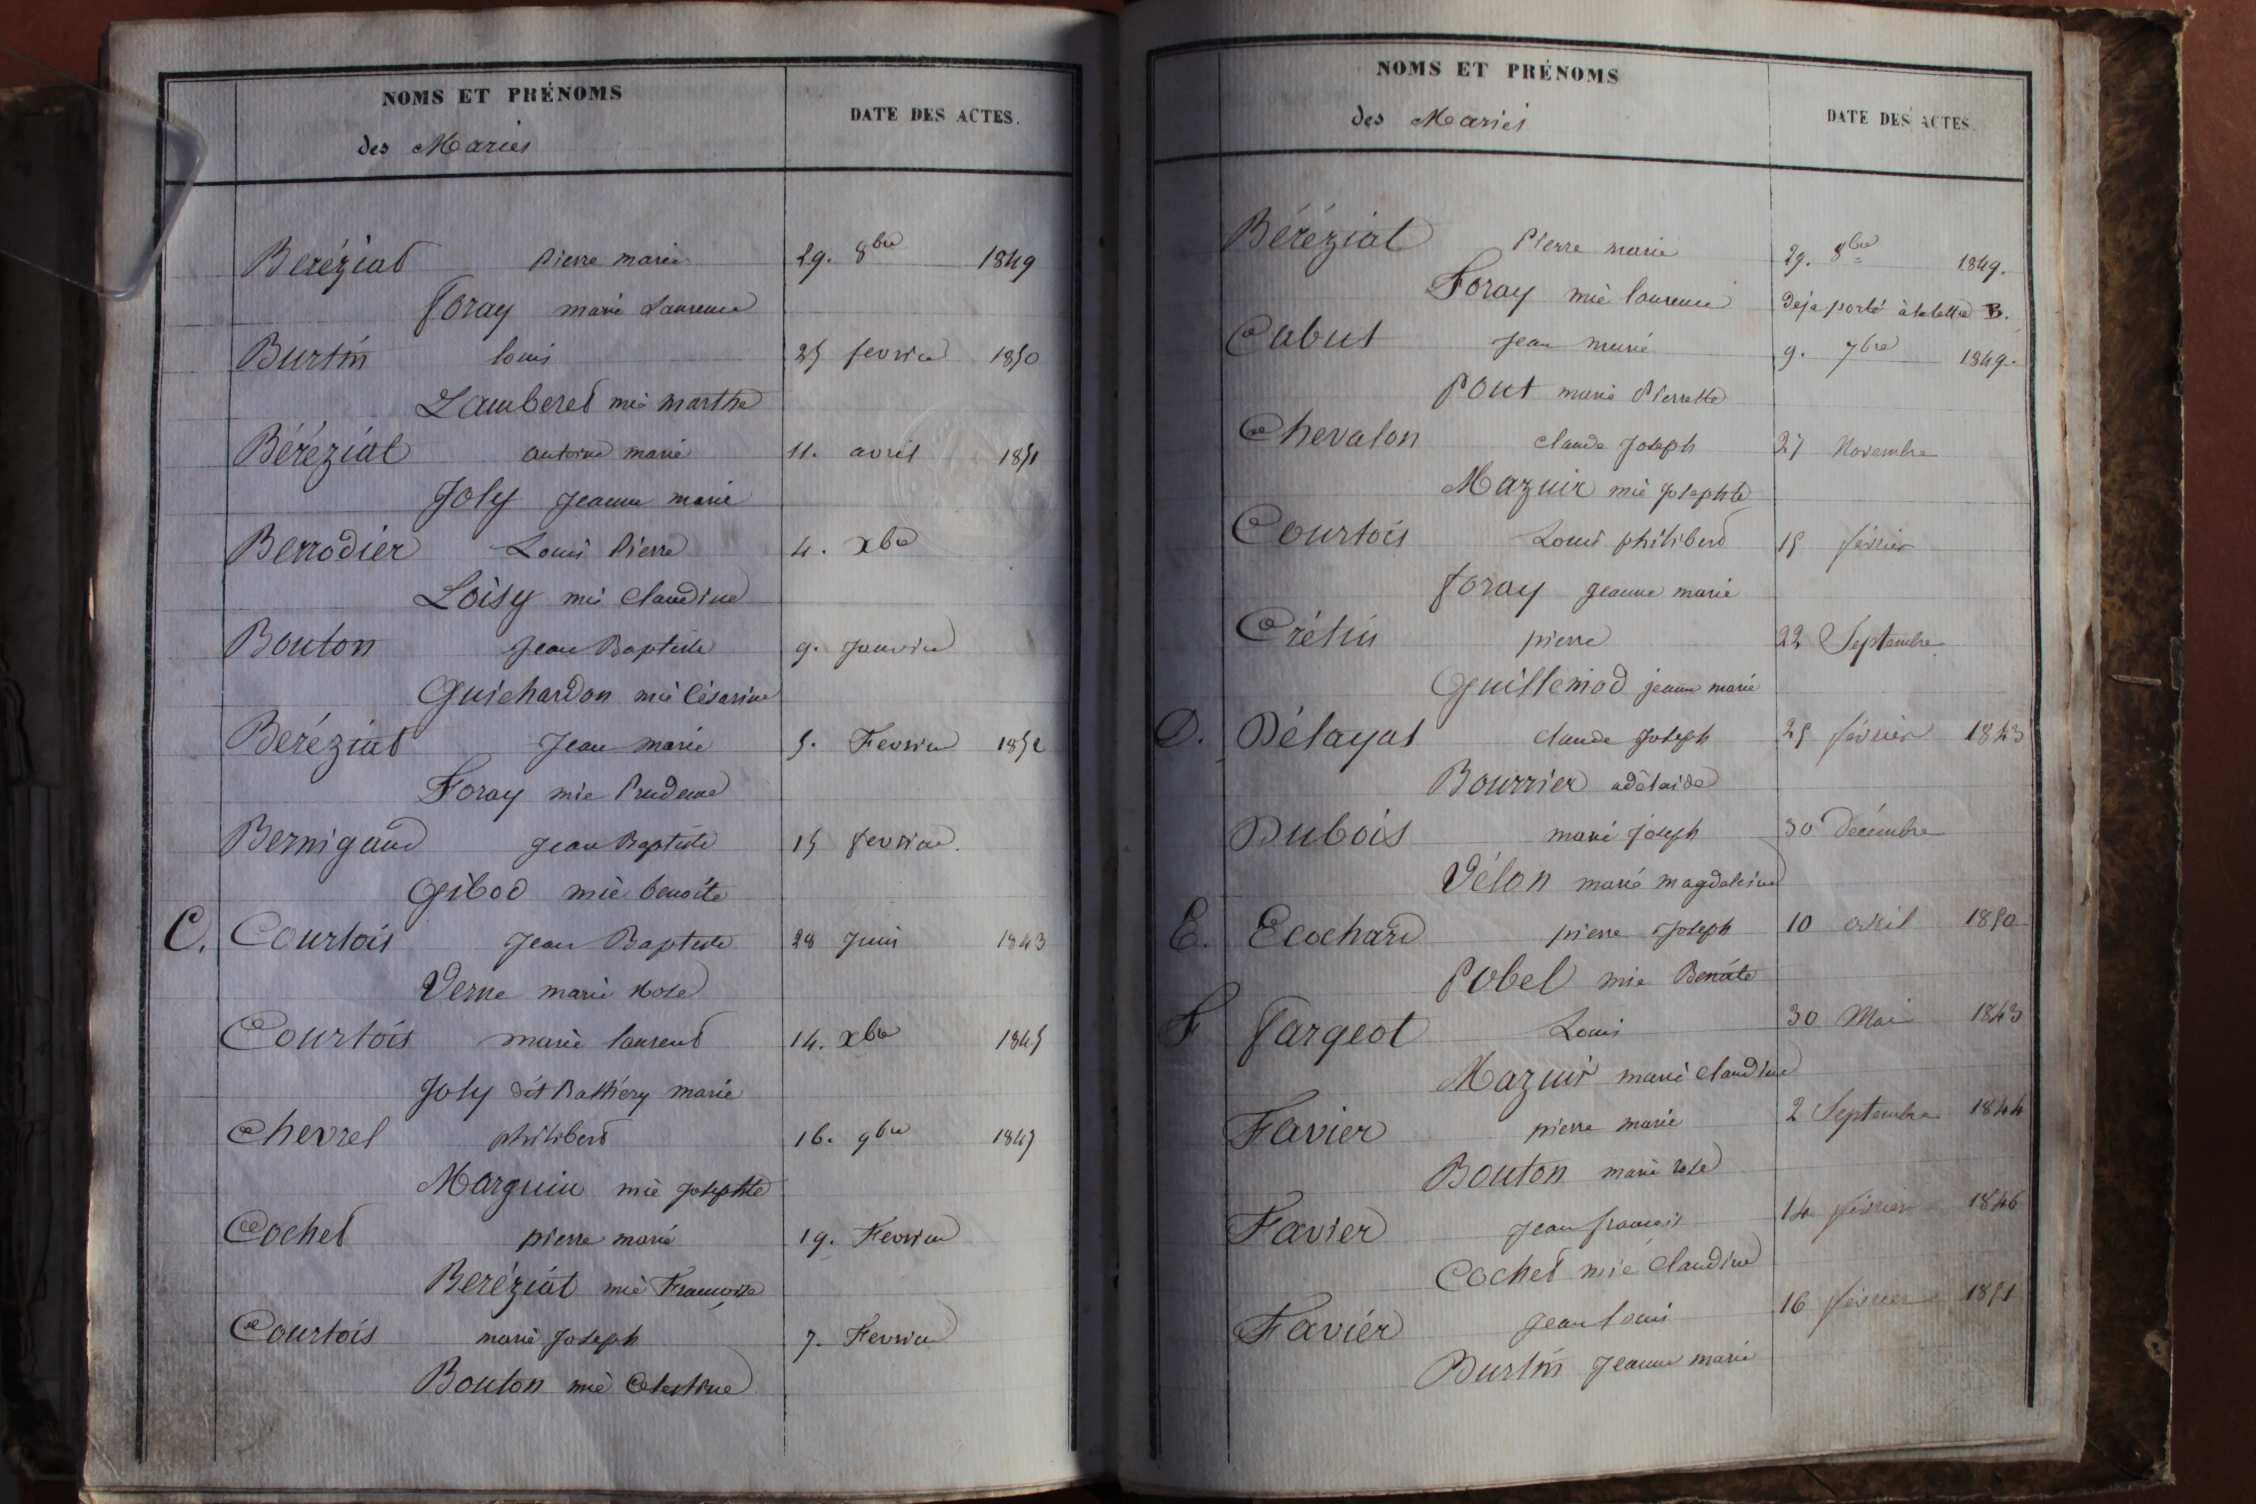 NOMS ET PRÉNOMS
des Mariés
DATE DES ACTES.
Beréziat pierre marie 29. 8bre 1849
foray marie Laurence
Burtin louis 25 fevrier 1850
Lamberet mie marthe
Béréziat antoine marie 11. avril 1851
Joly jeanne marie
Berrodier Louis Pierre 4. Xbre
Loisy mie Claudine
Bouton Jean Baptiste 9. Janvier
Guichardon mie Césarine
Beréziat Jean marie 5. Fevrier 1852
Foray mie Prudence
Bernigaud jean Baptiste 15 fevrier.
Gibod mie benoite
C. Courtois Jean Baptiste 28 Juin 1843
Verne marie Rose
Courtois marie laurent 14. Xbre 1845
Joly dit Bathiéry marie
Chevrel philibert 16. 9bre 1847
Marguin mie Josephte
Cochet pierre marie 19. Fevrier
Beréziat mie Françoise
Courtois marie Joseph 7. Fevrier
Bouton mie Celestine
NOMS ET PRÉNOMS
des Mariés
DATE DES ACTES.
Béréziat Pierre marie 29. 8bre 1849.
Foray mie laurence Déja porté à la lettre B.
Cabut Jean marie 9. 7bre 1849.
Pont marie Pierrette
Chevalon claude Joseph 27 Novembre
Mazuir mie Josephte
Courtois Louis philibert 15 février
foray jeanne marie
Crétin pierre 22 Septembre
Guillemod jeanne marie
D. Délayat claude Joseph 25 février 1843
Bourrier adélaide
Dubois marie joseph 30 Décembre
Vélon marie magdeleine
E. Ecochard pierre Joseph 10 avril 1850
Pobel mie Benoite
F fargeot Louis 30 Mai 1843
Mazuir marie claudine
Favier pierre marie 2 Septembre 1844
Bouton marie rose
Favier jean françois 14 février 1846
Cochet mie Claudine
Favier jean louis 16 février 1851
Burtin Jeanne marie